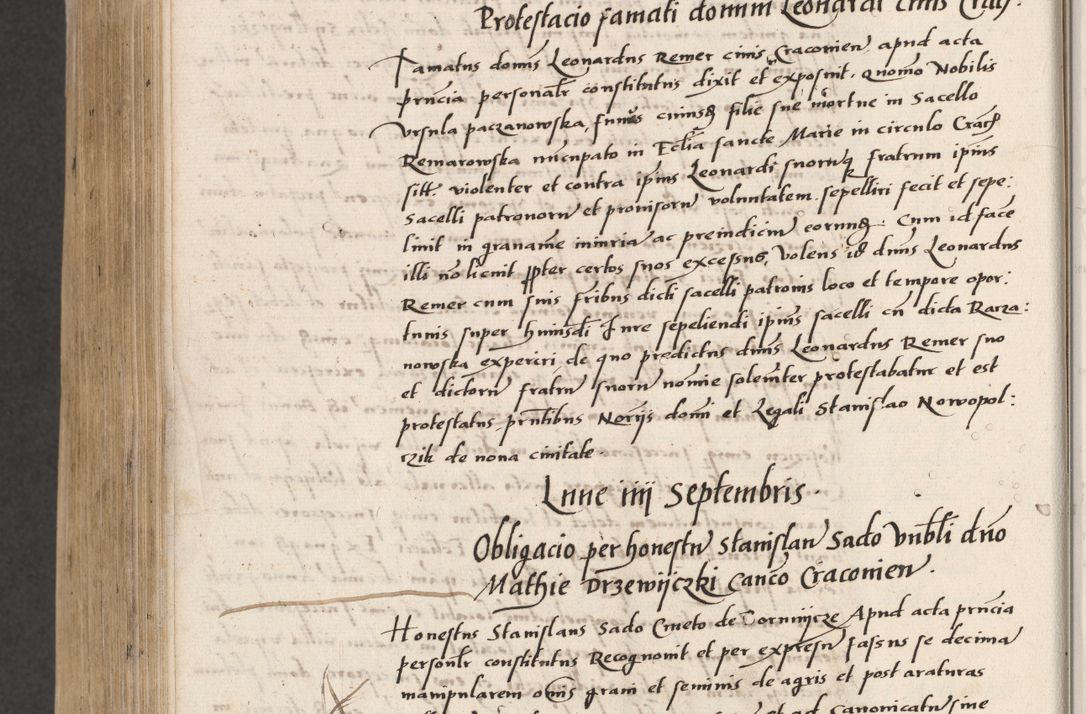 Protestacio famati domini Leonardi civis Crac:
Famatus domis Leonardus Remer civis Cracovien apud acta
prñcia personalr constitutus dixit et exposuit. Quomo Nobilis
Ursula paczanowska, funus civisq filie sue mortue in Sacello
Remarowska nuncupato in Ecclia sancte Marie in circulo Crac
sitt. violenter et contra ipius Leonardi suorumq fratrum ipius
Sacelli patronoru et provisoru voluntatem. sepelliri fecit et sepe:
livit in gravame iniuria ac preiudiciu eorunq: Cum id face
illi no licuit ppter certos suos excessus, Volens id dnus Leonardus
Remer cum suis fribus dicti sacelli patronis loco et tempore opor:
tunis super huiusdi Jure sepeliendi ipius sacelli cu dicta Karza:
nowska experiri de quo predictus dnus Leonardus Remer suo
et dictoru fratru suoru nomie solemter protestabatur et est
protestatus prntibus Noriis domi et Legali Stanislao Nowopol:
czik de nova civitate.
Lune iiij Septembris.
Obligacio per honestu Stanislau Sado Vnbli dno
Mathie Drzewijczki Canco Cracovien.
Honestus Stanislaus Sado Cmeto de Apud acta prncia
personlr constitutus Recognovit et per expresu fassus se decima
manipularem omis grani et seminis de agris et post araturas
et ad Canonicatu sive